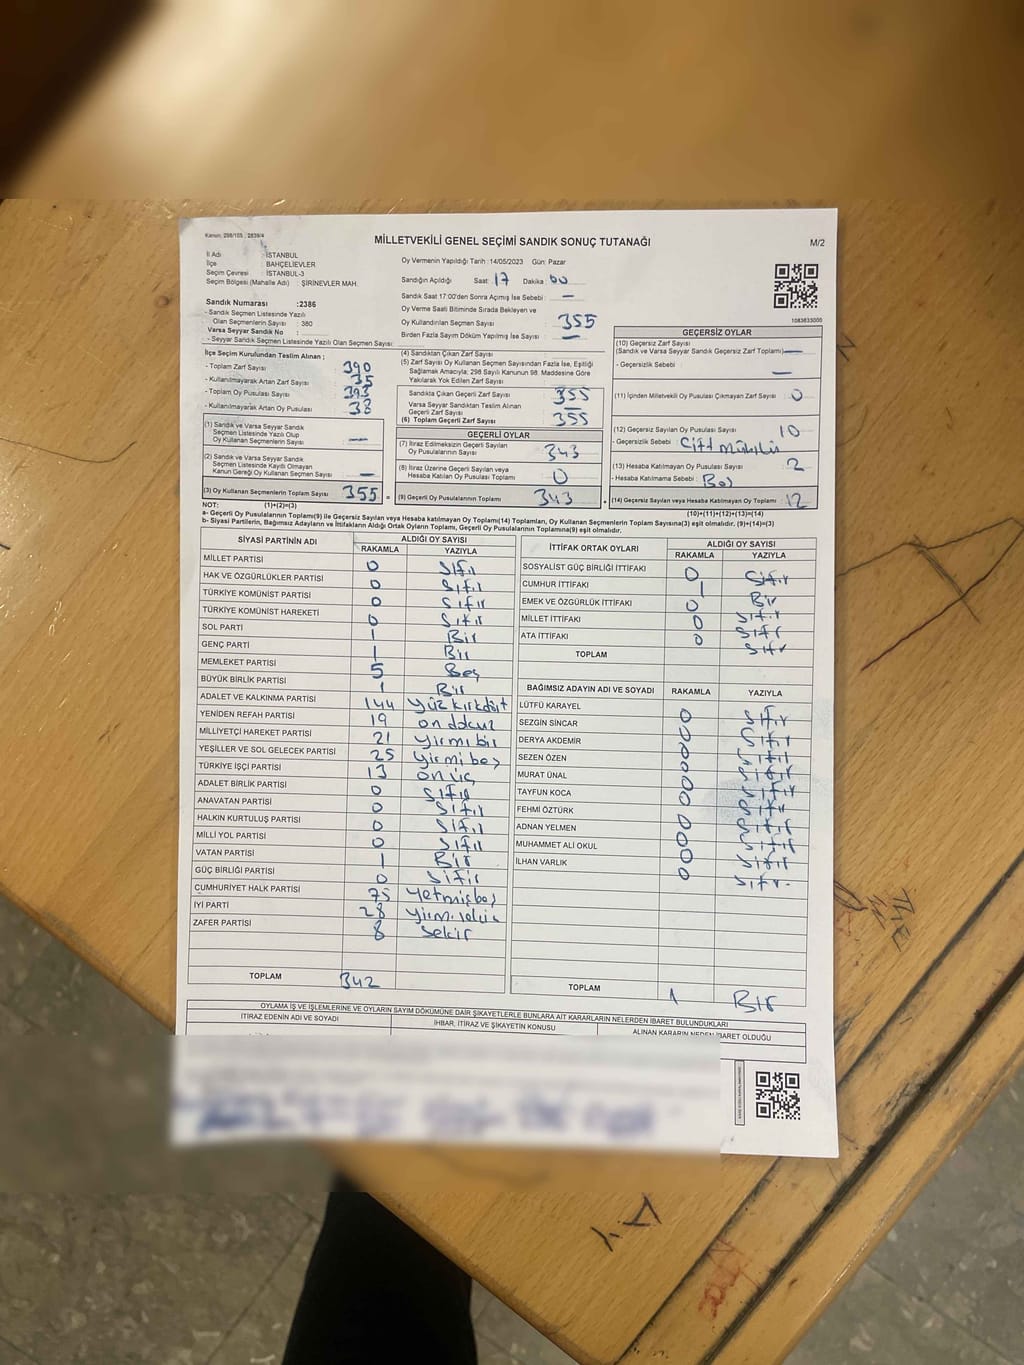 Kanun: 298/105 ; 2839/4
MİLLETVEKİLİ GENEL SEÇİMİ SANDIK SONUÇ TUTANAĞI
M/2
İl Adı : İSTANBUL
İlçe : BAHÇELİEVLER
Seçim Çevresi : İSTANBUL-3
Seçim Bölgesi (Mahalle Adı) : ŞİRİNEVLER MAH.
Sandık Numarası :2386
- Sandık Seçmen Listesinde Yazılı
Olan Seçmenlerin Sayısı : 380
Varsa Seyyar Sandık No :
- Seyyar Sandık Seçmen Listesinde Yazılı Olan Seçmen Sayısı:
Oy Vermenin Yapıldığı Tarih : 14/05/2023 Gün: Pazar
Sandığın Açıldığı Saat: 17 Dakika: 00
Sandık Saat 17:00'den Sonra Açılmış İse Sebebi : —
Oy Verme Saati Bitiminde Sırada Bekleyen ve
Oy Kullandırılan Seçmen Sayısı : 355
Birden Fazla Sayım Döküm Yapılmış İse Sayısı : —
1083633000
İlçe Seçim Kurulundan Teslim Alınan ;
- Toplam Zarf Sayısı : 390
- Kullanılmayarak Artan Zarf Sayısı : 35
- Toplam Oy Pusulası : 393
- Kullanılmayarak Artan Oy Pusulası : 38
(1) Sandık ve Varsa Seyyar Sandık
Seçmen Listesinde Yazılı Olup
Oy Kullanan Seçmenlerin Sayısı : —
(2) Sandık ve Varsa Seyyar Sandık
Seçmen Listesinde Kaydı Olmayan
Kanun Gereği Oy Kullanan Seçmen Sayısı : —
(3) Oy Kullanan Seçmenlerin Toplam Sayısı : 355
(4) Sandıktan Çıkan Zarf Sayısı :
(5) Zarf Sayısı Oy Kullanan Seçmen Sayısından Fazla İse, Eşitliği
Sağlamak Amacıyla; 298 Sayılı Kanunun 98. Maddesine Göre
Yakılarak Yok Edilen Zarf Sayısı :
Sandıkta Çıkan Geçerli Zarf Sayısı : 355
Varsa Seyyar Sandıktan Teslim Alınan
Geçerli Zarf Sayısı : —
(6) Toplam Geçerli Zarf Sayısı : 355
GEÇERLİ OYLAR
(7) İtiraz Edilmeksizin Geçerli Sayılan
Oy Pusulasının Sayısı : 343
(8) İtiraz Üzerine Geçerli Sayılan veya
Hesaba Katılan Oy Pusulası Toplamı : 0
(9) Geçerli Oy Pusulalarının Toplamı : 343
GEÇERSİZ OYLAR
(10) Geçersiz Zarf Sayısı
(Sandık ve Varsa Seyyar Sandık Geçersiz Zarf Toplamı) —
- Geçersizlik Sebebi : —
(11) İçinden Milletvekili Oy Pusulası Çıkmayan Zarf Sayısı : 0
(12) Geçersiz Sayılan Oy Pusulası Sayısı : 10
- Geçersizlik Sebebi : Çift mühür
(13) Hesaba Katılmayan Oy Pusulası Sayısı : 2
- Hesaba Katılmama Sebebi : Boş
(14) Geçersiz Sayılan veya Hesaba Katılmayan Oy Toplamı : 12
NOT: (1)+(2)=(3)
(10)+(11)+(12)+(13)=(14)
a- Geçerli Oy Pusulalarının Toplamı(9) ile Geçersiz Sayılan veya Hesaba katılmayan Oy Toplamı(14) Toplamları, Oy Kullanan Seçmenlerin Toplam Sayısına(3) eşit olmalıdır. (9)+(14)=(3)
b- Siyasi Partilerin, Bağımsız Adayların ve İttifakların Aldığı Ortak Oyların Toplamı, Geçerli Oy Pusulalarının Toplamına(9) eşit olmalıdır.
SİYASİ PARTİNİN ADI ALDIĞI OY SAYISI
RAKAMLA YAZIYLA
MİLLET PARTİSİ 0 Sıfır
HAK VE ÖZGÜRLÜKLER PARTİSİ 0 Sıfır
TÜRKİYE KOMÜNİST PARTİSİ 0 Sıfır
TÜRKİYE KOMÜNİST HAREKETİ 0 Sıfır
SOL PARTİ 1 Bir
GENÇ PARTİ 1 Bir
MEMLEKET PARTİSİ 5 Beş
BÜYÜK BİRLİK PARTİSİ 1 Bir
ADALET VE KALKINMA PARTİSİ 144 Yüz kırkdört
YENİDEN REFAH PARTİSİ 19 on dokuz
MİLLİYETÇİ HAREKET PARTİSİ 21 yirmi bir
YEŞİLLER VE SOL GELECEK PARTİSİ 25 yirmi beş
TÜRKİYE İŞÇİ PARTİSİ 13 on üç
ADALET BİRLİK PARTİSİ 0 Sıfır
ANAVATAN PARTİSİ 0 Sıfır
HALKIN KURTULUŞ PARTİSİ 0 Sıfır
MİLLİ YOL PARTİSİ 0 Sıfır
VATAN PARTİSİ 1 Bir
GÜÇ BİRLİĞİ PARTİSİ 0 Sıfır
CUMHURİYET HALK PARTİSİ 75 Yetmişbeş
İYİ PARTİ 28 yirmi sekiz
ZAFER PARTİSİ 8 sekiz
TOPLAM 342
İTTİFAK ORTAK OYLARI ALDIĞI OY SAYISI
RAKAMLA YAZIYLA
SOSYALİST GÜÇ BİRLİĞİ İTTİFAKI 0 Sıfır
CUMHUR İTTİFAKI 1 Bir
EMEK VE ÖZGÜRLÜK İTTİFAKI 0 Sıfır
MİLLET İTTİFAKI 0 Sıfır
ATA İTTİFAKI 0 Sıfır
TOPLAM
BAĞIMSIZ ADAYIN ADI VE SOYADI RAKAMLA YAZIYLA
LÜTFÜ KARAYEL 0 Sıfır
SEZGİN SİNCAR 0 Sıfır
DERYA AKDEMİR 0 Sıfır
SEZEN ÖZEN 0 Sıfır
MURAT ÜNAL 0 Sıfır
TAYFUN KOCA 0 Sıfır
FEHMİ ÖZTÜRK 0 Sıfır
ADNAN YELMEN 0 Sıfır
MUHAMMET ALİ OKUL 0 Sıfır
İLHAN VARLIK 0 Sıfır
TOPLAM 1 Bir
OYLAMA İŞ VE İŞLEMLERİNE VE OYLARIN SAYIM DÖKÜMÜNE DAİR ŞİKAYETLERLE BUNLARA AİT KARARLARIN NELERDEN İBARET BULUNDUKLARI
İTİRAZ EDENİN ADI VE SOYADI İHBAR, İTİRAZ VE ŞİKAYETİN KONUSU ALINAN KARARIN NEDEN İBARET OLDUĞU